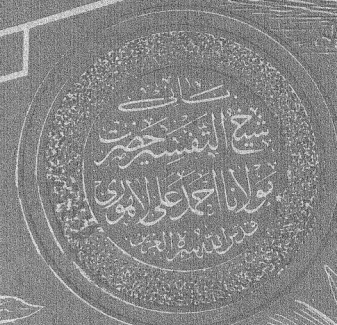 بانی
شیخ التفسیر حضرت
مولانا احمد علی لاہوری
قدس اللہ سرہ العزیز